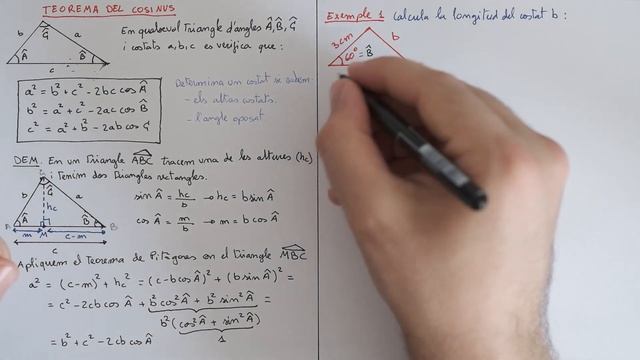 TEOREMA DEL COSINUS
b
Ĉ
a
Â
B̂
c
En qualsevol triangle d'angles Â, B̂, Ĉ
i costats a, b, c es verifica que :
a² = b² + c² - 2bc cos Â
b² = a² + c² - 2ac cos B̂
c² = a² + b² - 2ab cos Ĉ
Determina un costat si sabem
- els altres costats.
- l'angle oposat
DEM. En un triangle ABC tracem una de les altures (hc)
i tenim dos triangles rectangles.
C
Ĉ
b
a
hc
Â
B̂
A
M
B
m
c-m
c
sin Â = hc/b → hc = b sin Â
cos Â = m/b → m = b cos Â
Apliquem el Teorema de Pitàgores en el triangle MBC
a² = (c-m)² + hc² = (c - b cos Â)² + (b sin Â)² =
= c² - 2cb cos Â + b² cos² Â + b² sin² Â =
b² (cos² Â + sin² Â)
1
= b² + c² - 2cb cos Â
Exemple 1 Calcula la longitud del costat b :
3cm
b
60° = B̂